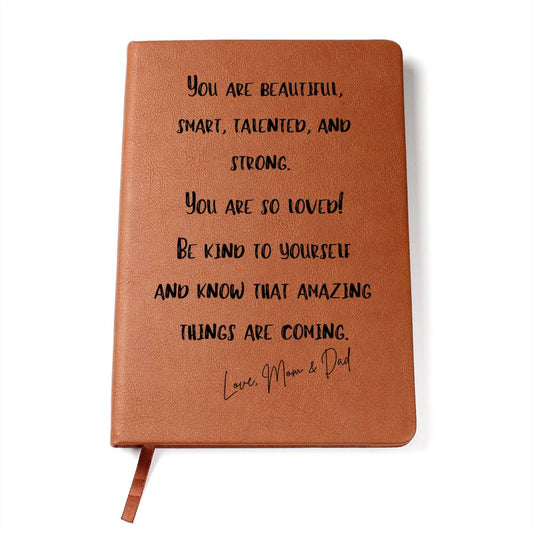 You are beautiful,
smart, talented, and
strong.
You are so loved!
Be kind to yourself
and know that amazing
things are coming.
Love, Mom & Dad